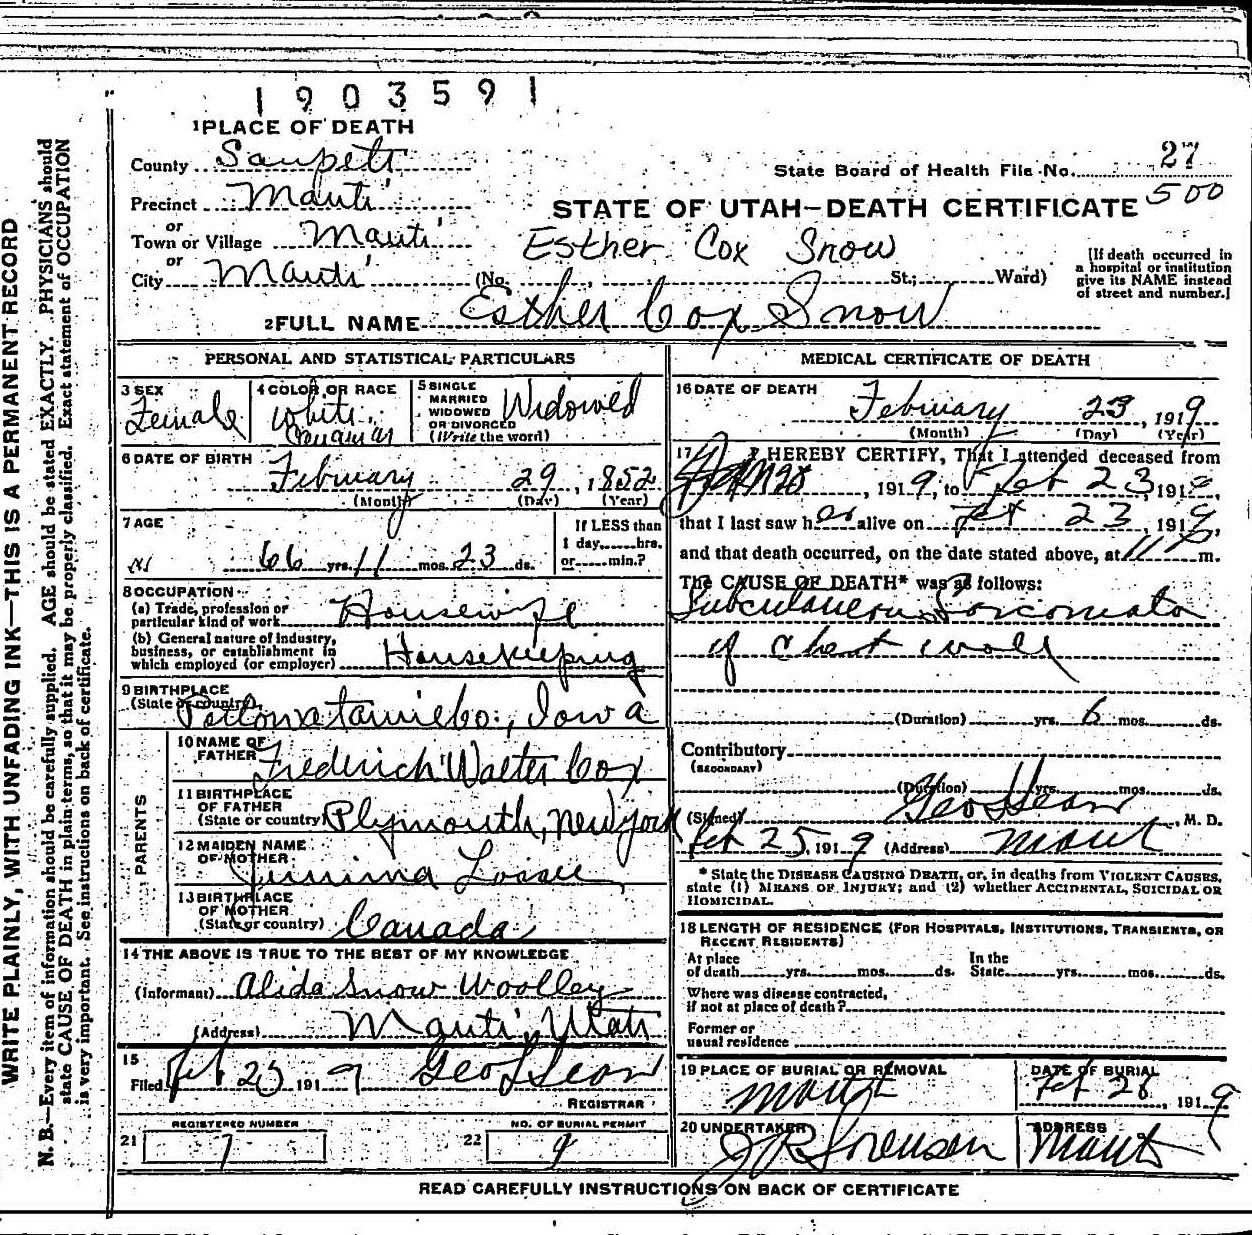 1903591
1 PLACE OF DEATH
County Sanpete
State Board of Health File No. 27
500
Precinct Manti
or
Town or Village Manti
or
City Manti
STATE OF UTAH—DEATH CERTIFICATE
Esther Cox Snow
(No. St.; Ward)
[If death occurred in
a hospital or institution
give its NAME instead
of street and number.]
2 FULL NAME Esther Cox Snow
PERSONAL AND STATISTICAL PARTICULARS
3 SEX
Female
4 COLOR OR RACE
White
5 SINGLE
MARRIED
WIDOWED
OR DIVORCED
(Write the word)
Widowed
6 DATE OF BIRTH
February 29, 1852
(Month) (Day) (Year)
7 AGE
66 yrs. 11 mos. 23 ds.
If LESS than
1 day, hrs.
or min.?
8 OCCUPATION
(a) Trade, profession or
particular kind of work Housewife
(b) General nature of industry,
business, or establishment in
which employed (or employer) Housekeeping
9 BIRTHPLACE
(State or country)
Pottowatamie Co., Iowa
PARENTS
10 NAME OF
FATHER Frederick Walter Cox
11 BIRTHPLACE
OF FATHER
(State or country) Plymouth, New York
12 MAIDEN NAME
OF MOTHER
Jemima Losee
13 BIRTHPLACE
OF MOTHER
(State or country) Canada
14 THE ABOVE IS TRUE TO THE BEST OF MY KNOWLEDGE
(Informant) Alida Snow Woolley
(Address) Manti, Utah
15
Filed Feb 25 1919 Geo L Sears
REGISTRAR
REGISTERED NUMBER
21 7
NO. OF BURIAL PERMIT
22 9
MEDICAL CERTIFICATE OF DEATH
16 DATE OF DEATH
February 23, 1919
(Month) (Day) (Year)
17 I HEREBY CERTIFY, That I attended deceased from
, 1919, to Feb 23 1919,
that I last saw her alive on Feb 23, 1919,
and that death occurred, on the date stated above, at 11 m.
The CAUSE OF DEATH* was as follows:
Subcutaneous Sarcomata
of chest wall
(Duration) yrs. 6 mos. ds.
Contributory
(SECONDARY)
(Duration) yrs. mos. ds.
(Signed) Geo L Sears, M. D.
Feb 25, 1919 (Address) Manti
* State the DISEASE CAUSING DEATH, or, in deaths from VIOLENT CAUSES,
state (1) MEANS OF INJURY; and (2) whether ACCIDENTAL, SUICIDAL OR
HOMICIDAL.
18 LENGTH OF RESIDENCE (FOR HOSPITALS, INSTITUTIONS, TRANSIENTS, OR
RECENT RESIDENTS)
At place
of death yrs. mos. ds.
In the
State yrs. mos. ds.
Where was disease contracted,
if not at place of death?
Former or
usual residence
19 PLACE OF BURIAL OR REMOVAL
Manti
DATE OF BURIAL
Feb 26, 1919
20 UNDERTAKER
Sorensen
ADDRESS
Manti
READ CAREFULLY INSTRUCTIONS ON BACK OF CERTIFICATE
WRITE PLAINLY, WITH UNFADING INK—THIS IS A PERMANENT RECORD
N. B.—Every item of information should be carefully supplied. AGE should be stated EXACTLY. PHYSICIANS should
state CAUSE OF DEATH in plain terms, so that it may be properly classified. Exact statement of OCCUPATION
is very important. See instructions on back of certificate.